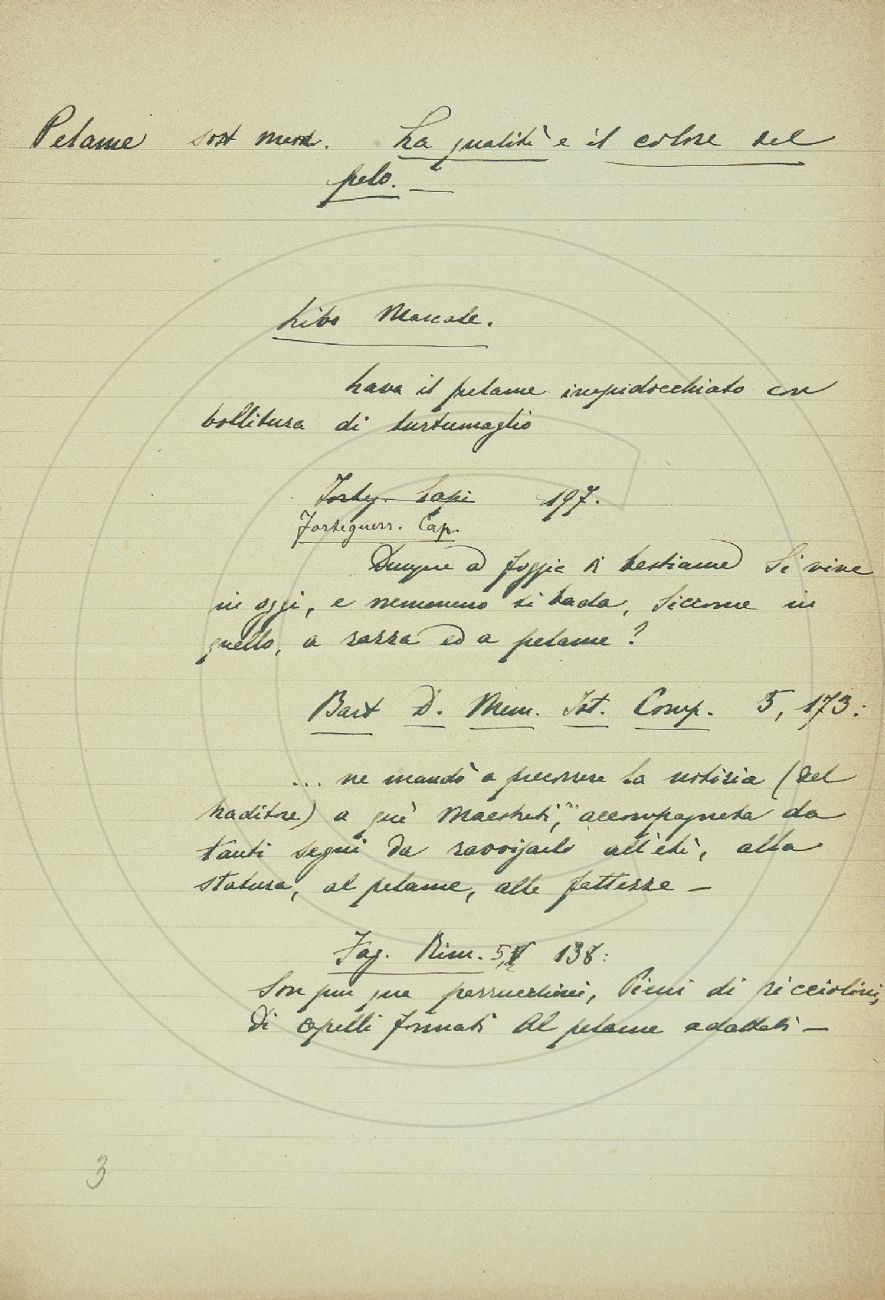 Pelame sost masc. La qualità e il colore del
pelo. —
Libro Mascalc.
Lava il pelame impidocchiato con
bollitura di turtumaglio
Forteg. Capi 197.
Forteguerr. Cap.
Dunque a foggie di bestiame Si vive
in oggi, e nemmeno si bada, Siccome in
quello, a razza ed a pelame?
Bart D. Mem. Ist. Comp. 5, 173:
... ne mandò a precorrere la notizia (del
traditore) a que' Maestreti, accompagnata da
tanti segni da ravvisarlo all'età, alla
statura, al pelame, alle fattezze —
Fag. Rim. 5, 138:
Son pur qua perrucchini, Pieni di ricciolini,
Di capelli formati Al pelame adattati —
3